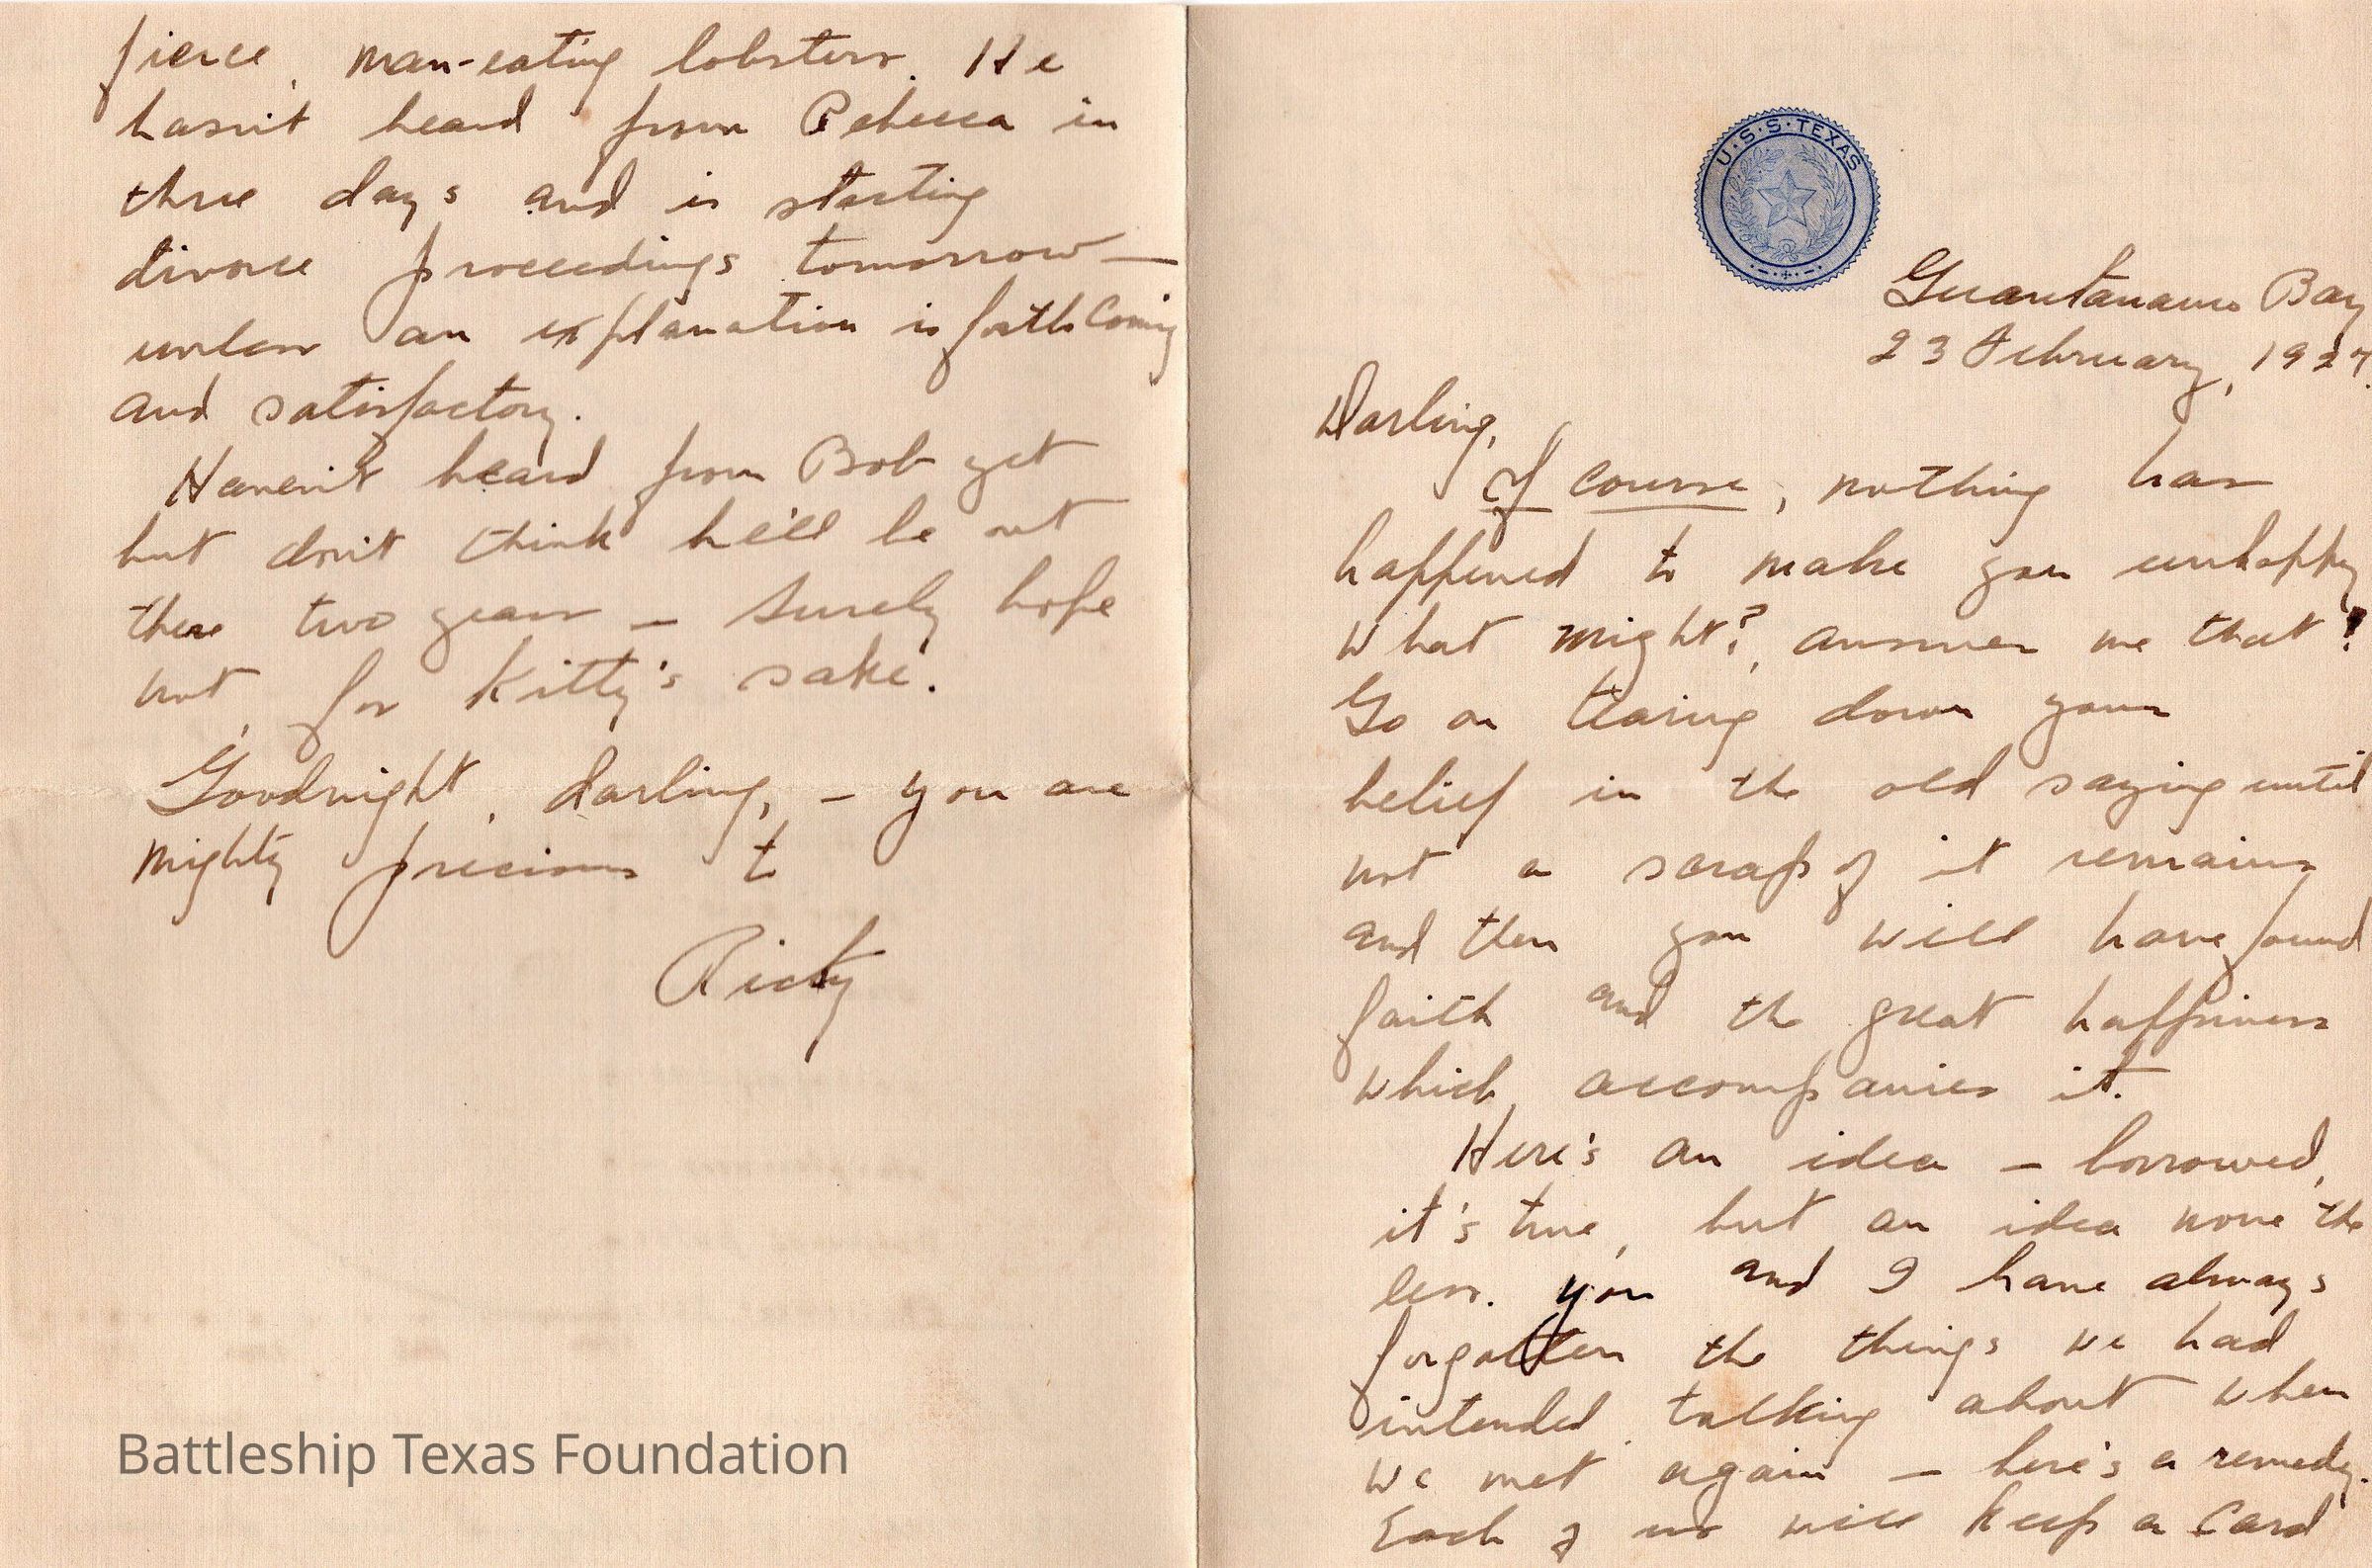 fierce, man-eating lobsters. He
hasn't heard from Rebecca in
three days and is starting
divorce proceedings tomorrow —
unless an explanation is forthcoming
and satisfactory.
Haven't heard from Bob yet
but don't think he'll be out
there two years — surely hope
not, for Kitty's sake.
Goodnight, darling, — you are
mighty precious to
Ricky
Battleship Texas Foundation
U·S·S·TEXAS
Guantanamo Bay
23 February, 1927.
Darling,
Of course, nothing has
happened to make you unhappy
What might?, answer me that!
Go on tearing down your
belief in the old saying until
not a scrap of it remains
and then you will have found
faith and the great happiness
which accompanies it.
Here's an idea — borrowed,
it's true, but an idea none the
less. You and I have always
forgotten the things we had
intended talking about when
we met again — here's a remedy.
Each of us will keep a card